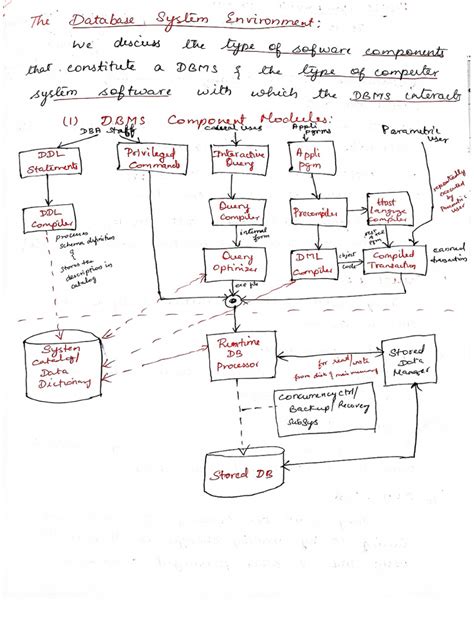 The Database System Environment:
We discuss the type of sofware components
that constitute a DBMS & the type of computer
system software with which the DBMS interacts
(1) DBMS Component Modules:
DBA staff
casual uses
Appli
pgrms
Parametric
user
DDL
Statements
Privileged
Commands
Interactive
Query
Appli
pgm
repeatedly
executed
by
Parametric
users
DDL
Compiler
Query
Compiler
Precompiler
Host
Language
Compiler
processes
schema definitions
&
stores the
description in
catalog
internal
form
Query
Optimizer
DML
Compiler
object
code
Compiled
Transaction
canned
transactions
System
Catalog/
Data
Dictionary
Runtime
DB
Processor
for read/write
from disk & main memory
Stored
Data
Manager
Concurrency ctrl/
Backup/Recovery
SubSys
Stored DB